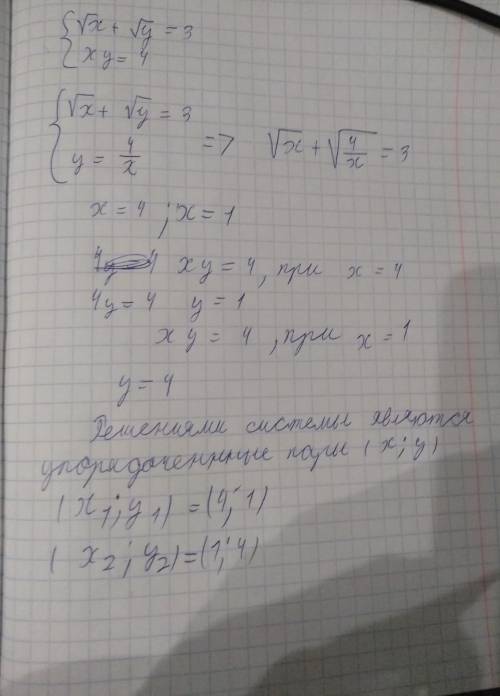 √x + √y = 3
xy = 4
√x + √y = 3
y = 4/x => √x + √(4/x) = 3
x = 4 ; x = 1
xy = 4, при x = 4
4y = 4 y = 1
xy = 4, при x = 1
y = 4
Решениями системы являются
упорядоченнные пары (x; y)
(x₁; y₁) = (4; 1)
(x₂; y₂) = (1; 4)